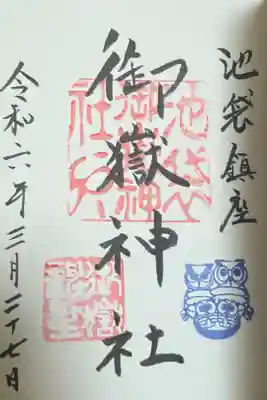 池袋鎮座
御嶽神社
令和六年三月二十七日
池袋
御嶽神
社印